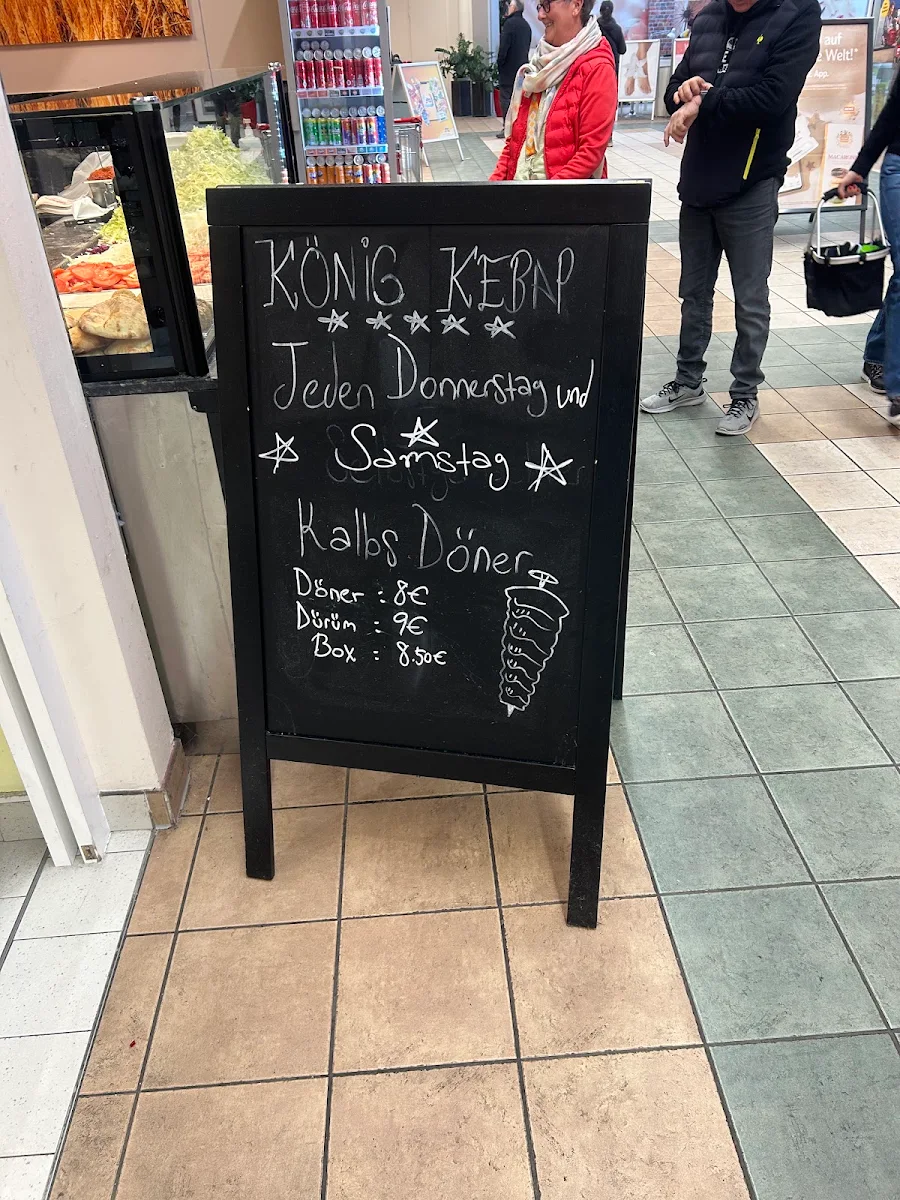 KÖNIG KEBAP
Jeden Donnerstag und
Samstag
Kalbs Döner
Döner : 8€
Dürüm : 9€
Box : 8.50€
auf
Welt!*
App.